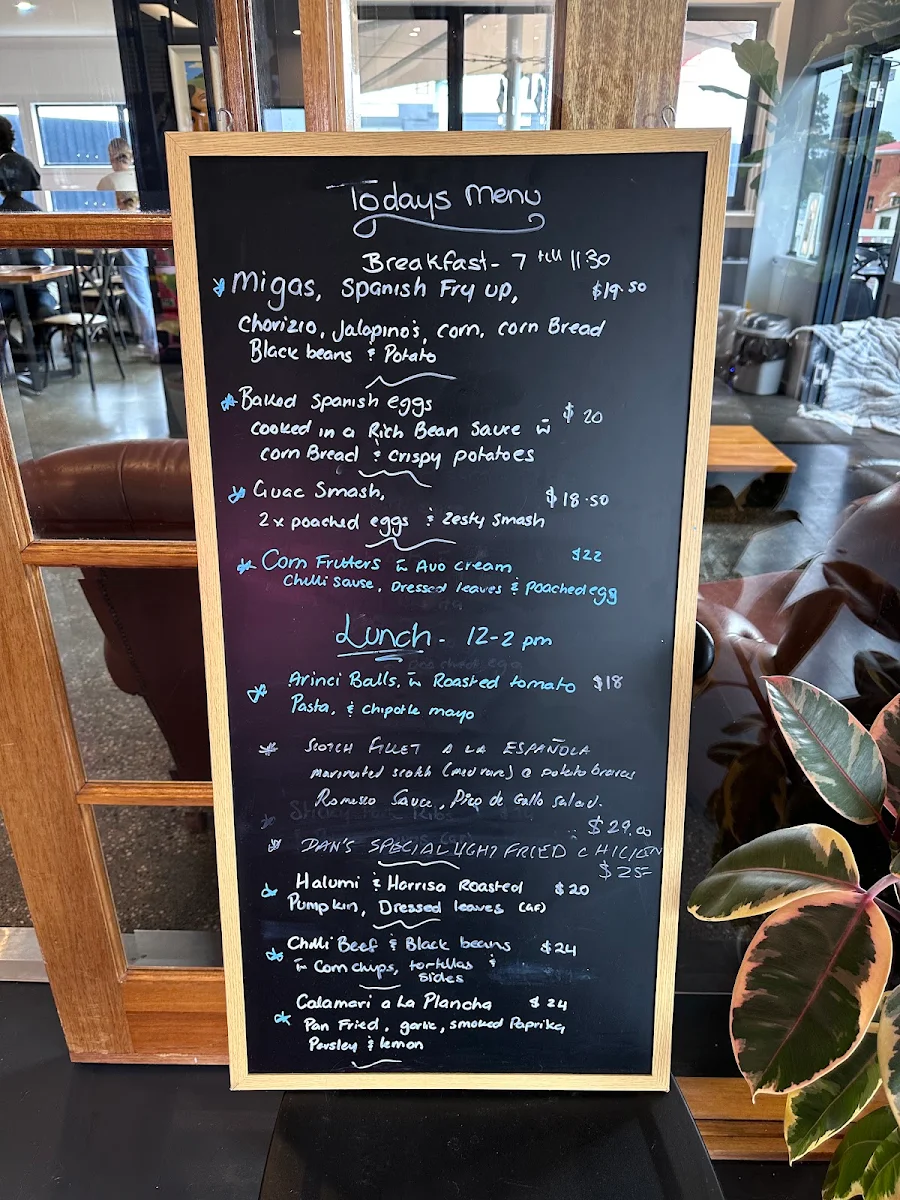 Todays Menu
Breakfast - 7 till 11 30
Migas, Spanish Fry up, $19.50
Chorizio, Jalapino's, corn, corn Bread
Black beans & Potato
Baked Spanish eggs
$20
cooked in a Rich Bean Sauce w
corn Bread & crispy potatoes
Guac Smash, $18.50
2x poached eggs & Zesty Smash
Corn Fritters w Avo cream $22
Chilli sause, Dressed leaves & Poached egg
Lunch - 12-2 pm
Arinci Balls, w Roasted tomato $18
Pasta, & chipotle mayo
SCOTCH FILLET A LA ESPAÑOLA
marinated scotch (med rare) @ potato bravas
Romesco Sauce, Pico de Gallo Salad.
$29.00
DAN'S SPECIAL LIGHT FRIED CHICKEN
$25=
Halumi & Harrisa Roasted $20
Pumpkin, Dressed leaves (GF)
Chilli Beef & Black beans $24
w Corn chips, tortillas &
sides
Calamari a La Plancha $24
Pan Fried, garlic, smoked Paprika
Parsley & lemon